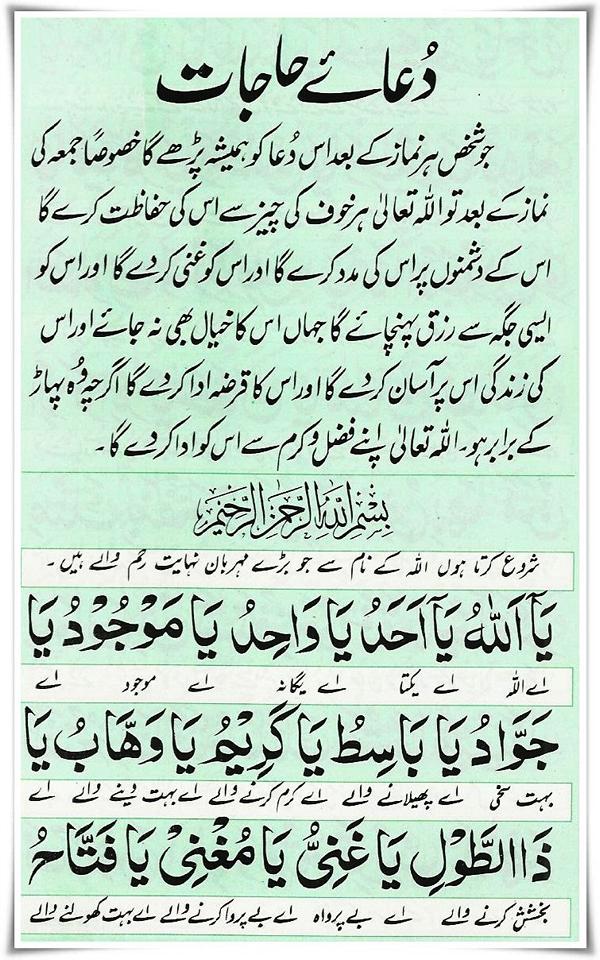 دُعائے حاجات
جو شخص ہر نماز کے بعد اس دُعا کو ہمیشہ پڑھے گا خصوصاً جمعہ کی
نماز کے بعد تو اللہ تعالیٰ ہر خوف کی چیز سے اس کی حفاظت کرے گا
اس کے دشمنوں پر اس کی مدد کرے گا اور اس کو غنی کر دے گا اور اس کو
ایسی جگہ سے رزق پہنچائے گا جہاں اس کا خیال بھی نہ جائے اور اس
کی زندگی اس پر آسان کر دے گا اور اس کا قرضہ ادا کر دے گا اگرچہ وُہ پہاڑ
کے برابر ہو۔ اللہ تعالیٰ اپنے فضل و کرم سے اس کو ادا کر دے گا۔
بِسْمِ اللّٰهِ الرَّحْمٰنِ الرَّحِيْمِ
شروع کرتا ہوں اللہ کے نام سے جو بڑے مہربان نہایت رحم والے ہیں۔
يَآ اَللّٰهُ يَآ اَحَدُ يَا وَاحِدُ يَا مَوْجُوْدُ يَا
اے اللہ اے یکتا اے یگانہ اے موجود اے
جَوَّادُ يَا بَاسِطُ يَا كَرِيْمُ يَا وَهَّابُ يَا
بہت سخی اے پھیلانے والے اے کرم کرنے والے اے بہت دینے والے اے
ذَا الطَّوْلِ يَا غَنِيُّ يَا مُغْنِيْ يَا فَتَّاحُ
بخشش کرنے والے اے بے پرواہ اے بے پروا کرنے والے اے بہت کھولنے والے